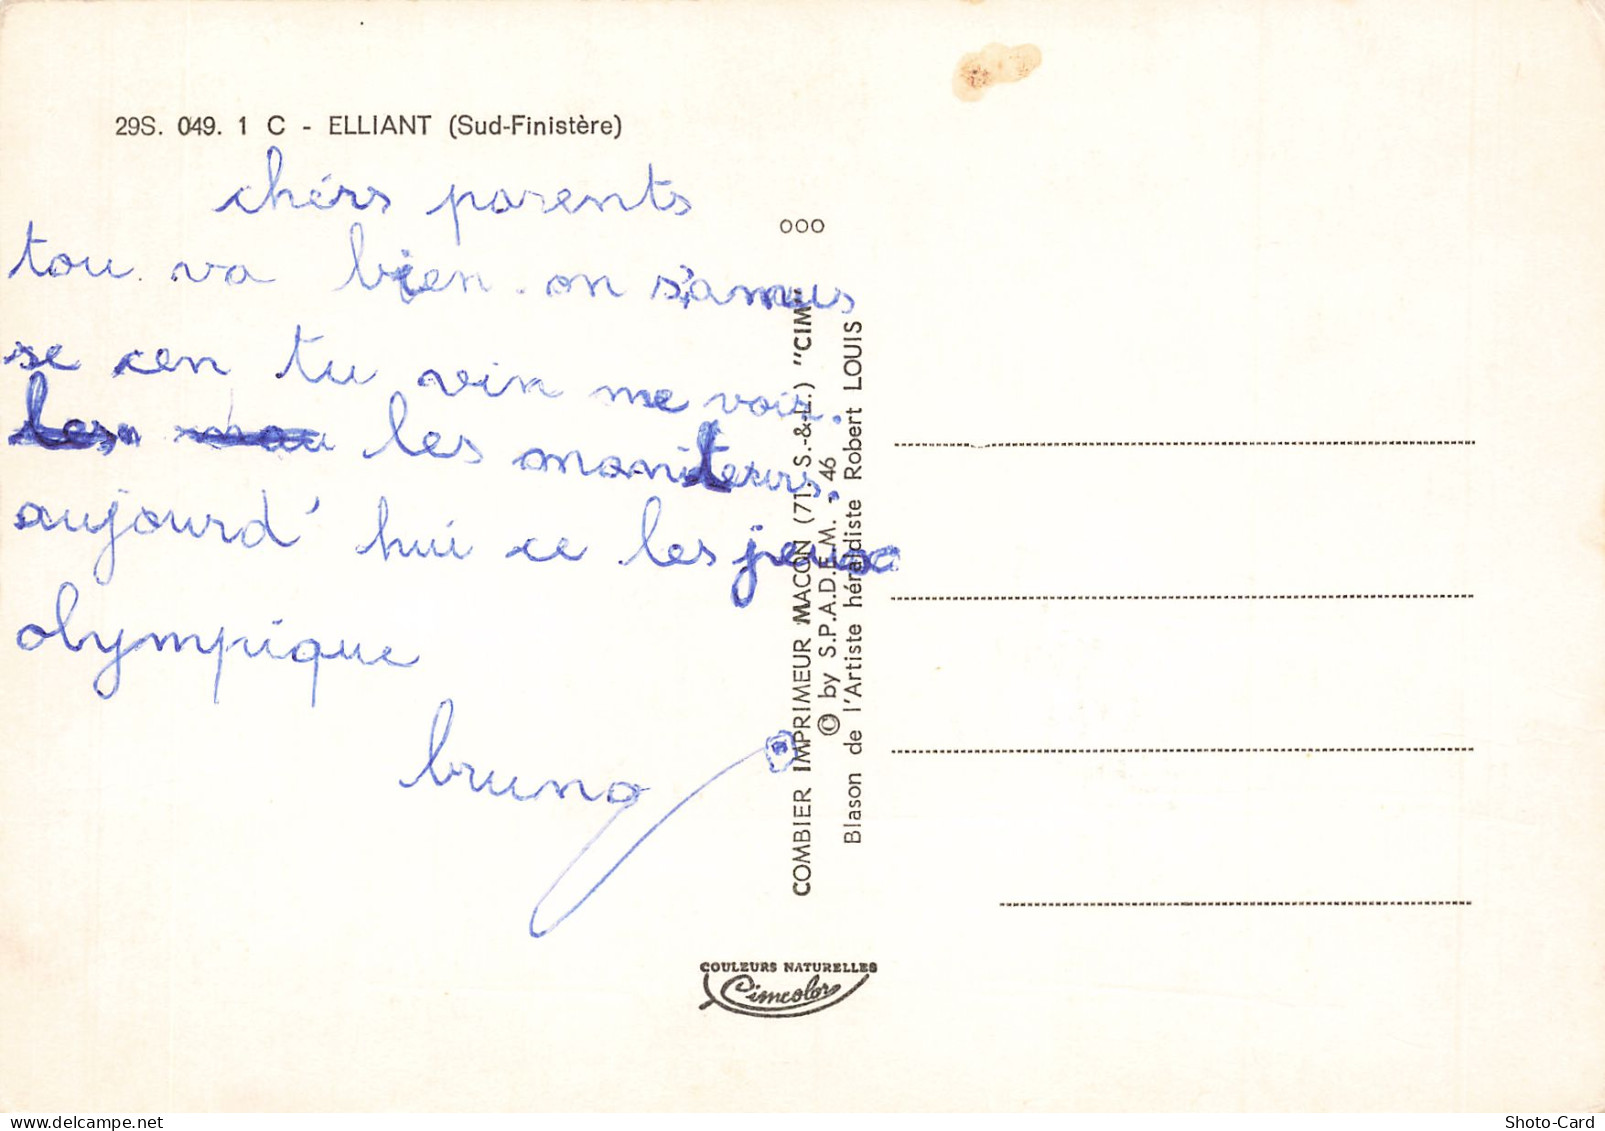 29S. 049. 1 C - ELLIANT (Sud-Finistère)
chérs parents
tou va bien. on s'amus
se cen tu vin me voir.
les les moniteurs.
aujourd' hui ce les jeux
olympique
bruno
ooo
COMBIER IMPRIMEUR MACON (71. S.-&-L.) "CIM"
© by S.P.A.D.E.M. - 46
Blason de l'Artiste héraldiste Robert LOUIS
COULEURS NATURELLES
Cimcolor
Shoto-Card